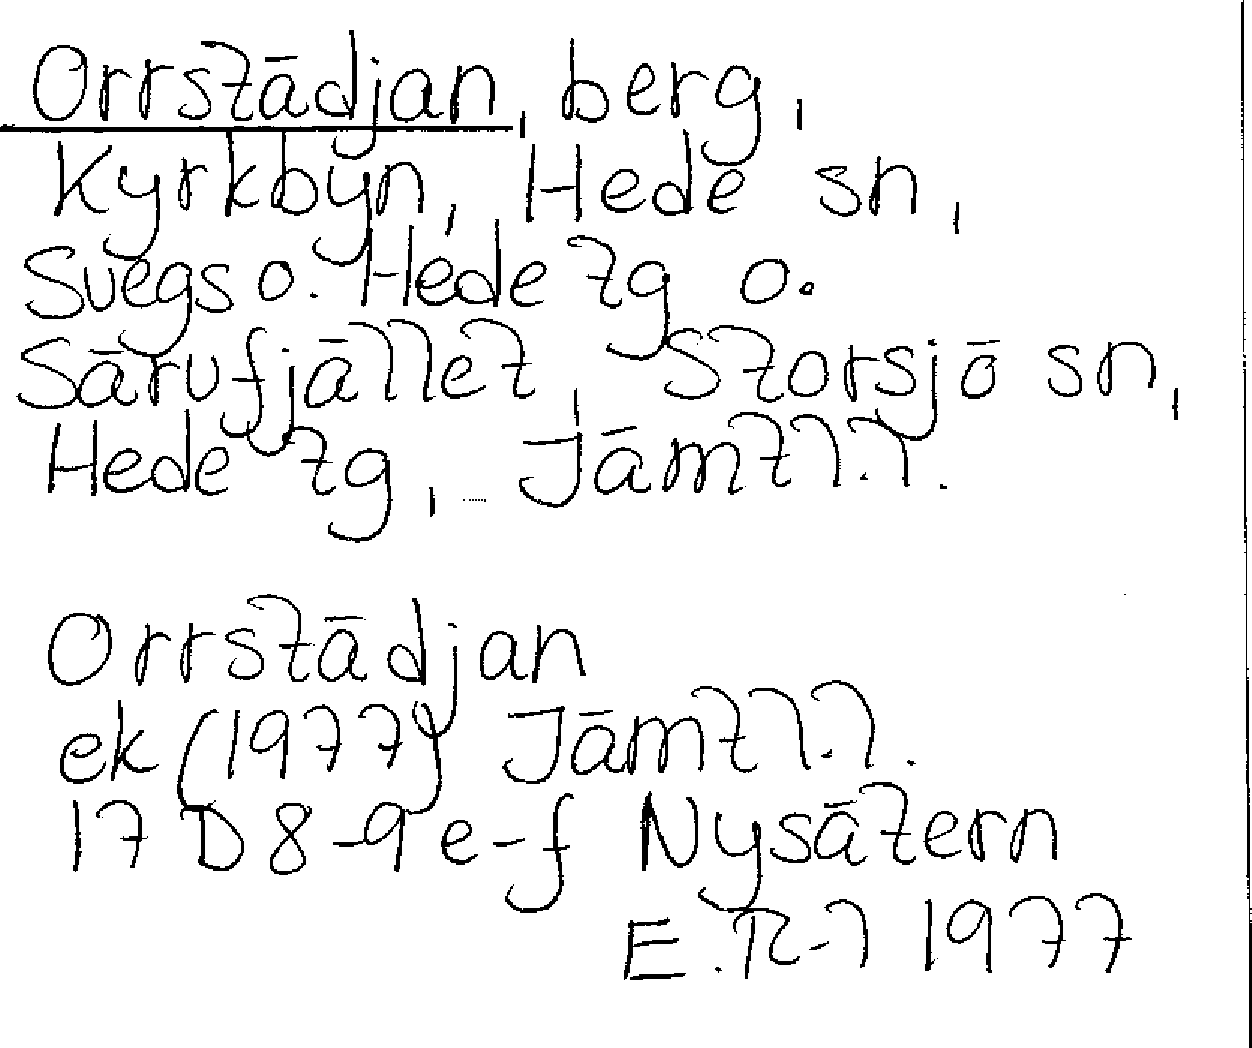 Orrstädjan, berg,
Kyrkbyn, Hede sn,
Svegs o. Hede tg o.
Särvfjället, Storsjö sn,
Hede tg, Jämtl.l.
Orrstädjan
ek (1977) Jämtl.l.
17 D 8-9 e-f Nysätern
E. R-l 1977